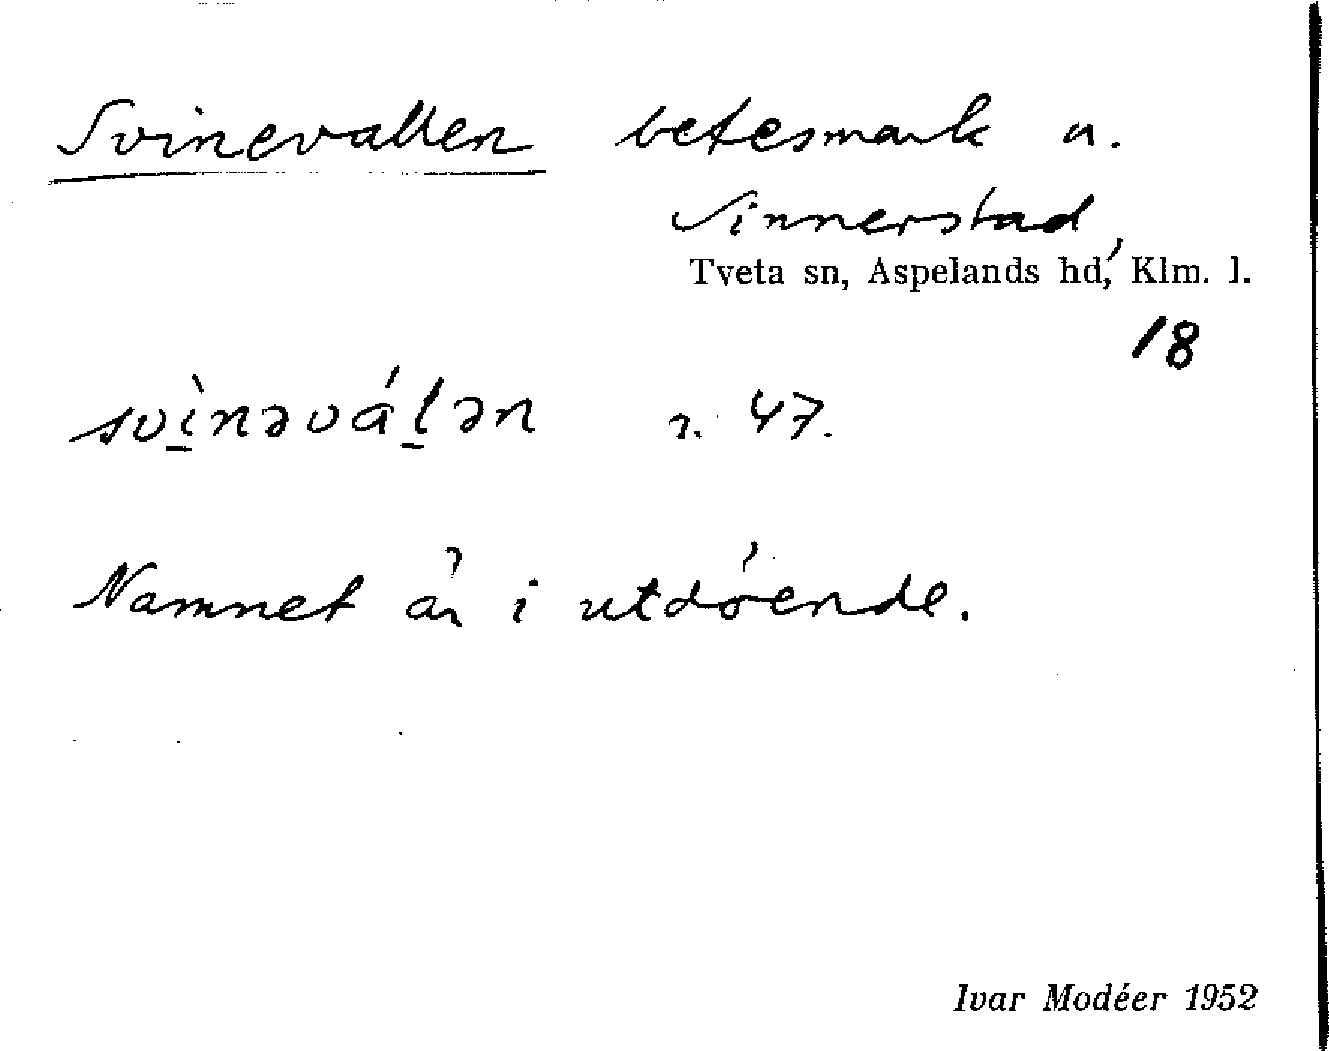 Svinevallen betesmark u.
Sinnerstad,
Tveta sn, Aspelands hd, Klm. l.
18
svì̠nəvál̠ən r. 47.
Namnet är i utdöende.
Ivar Modéer 1952